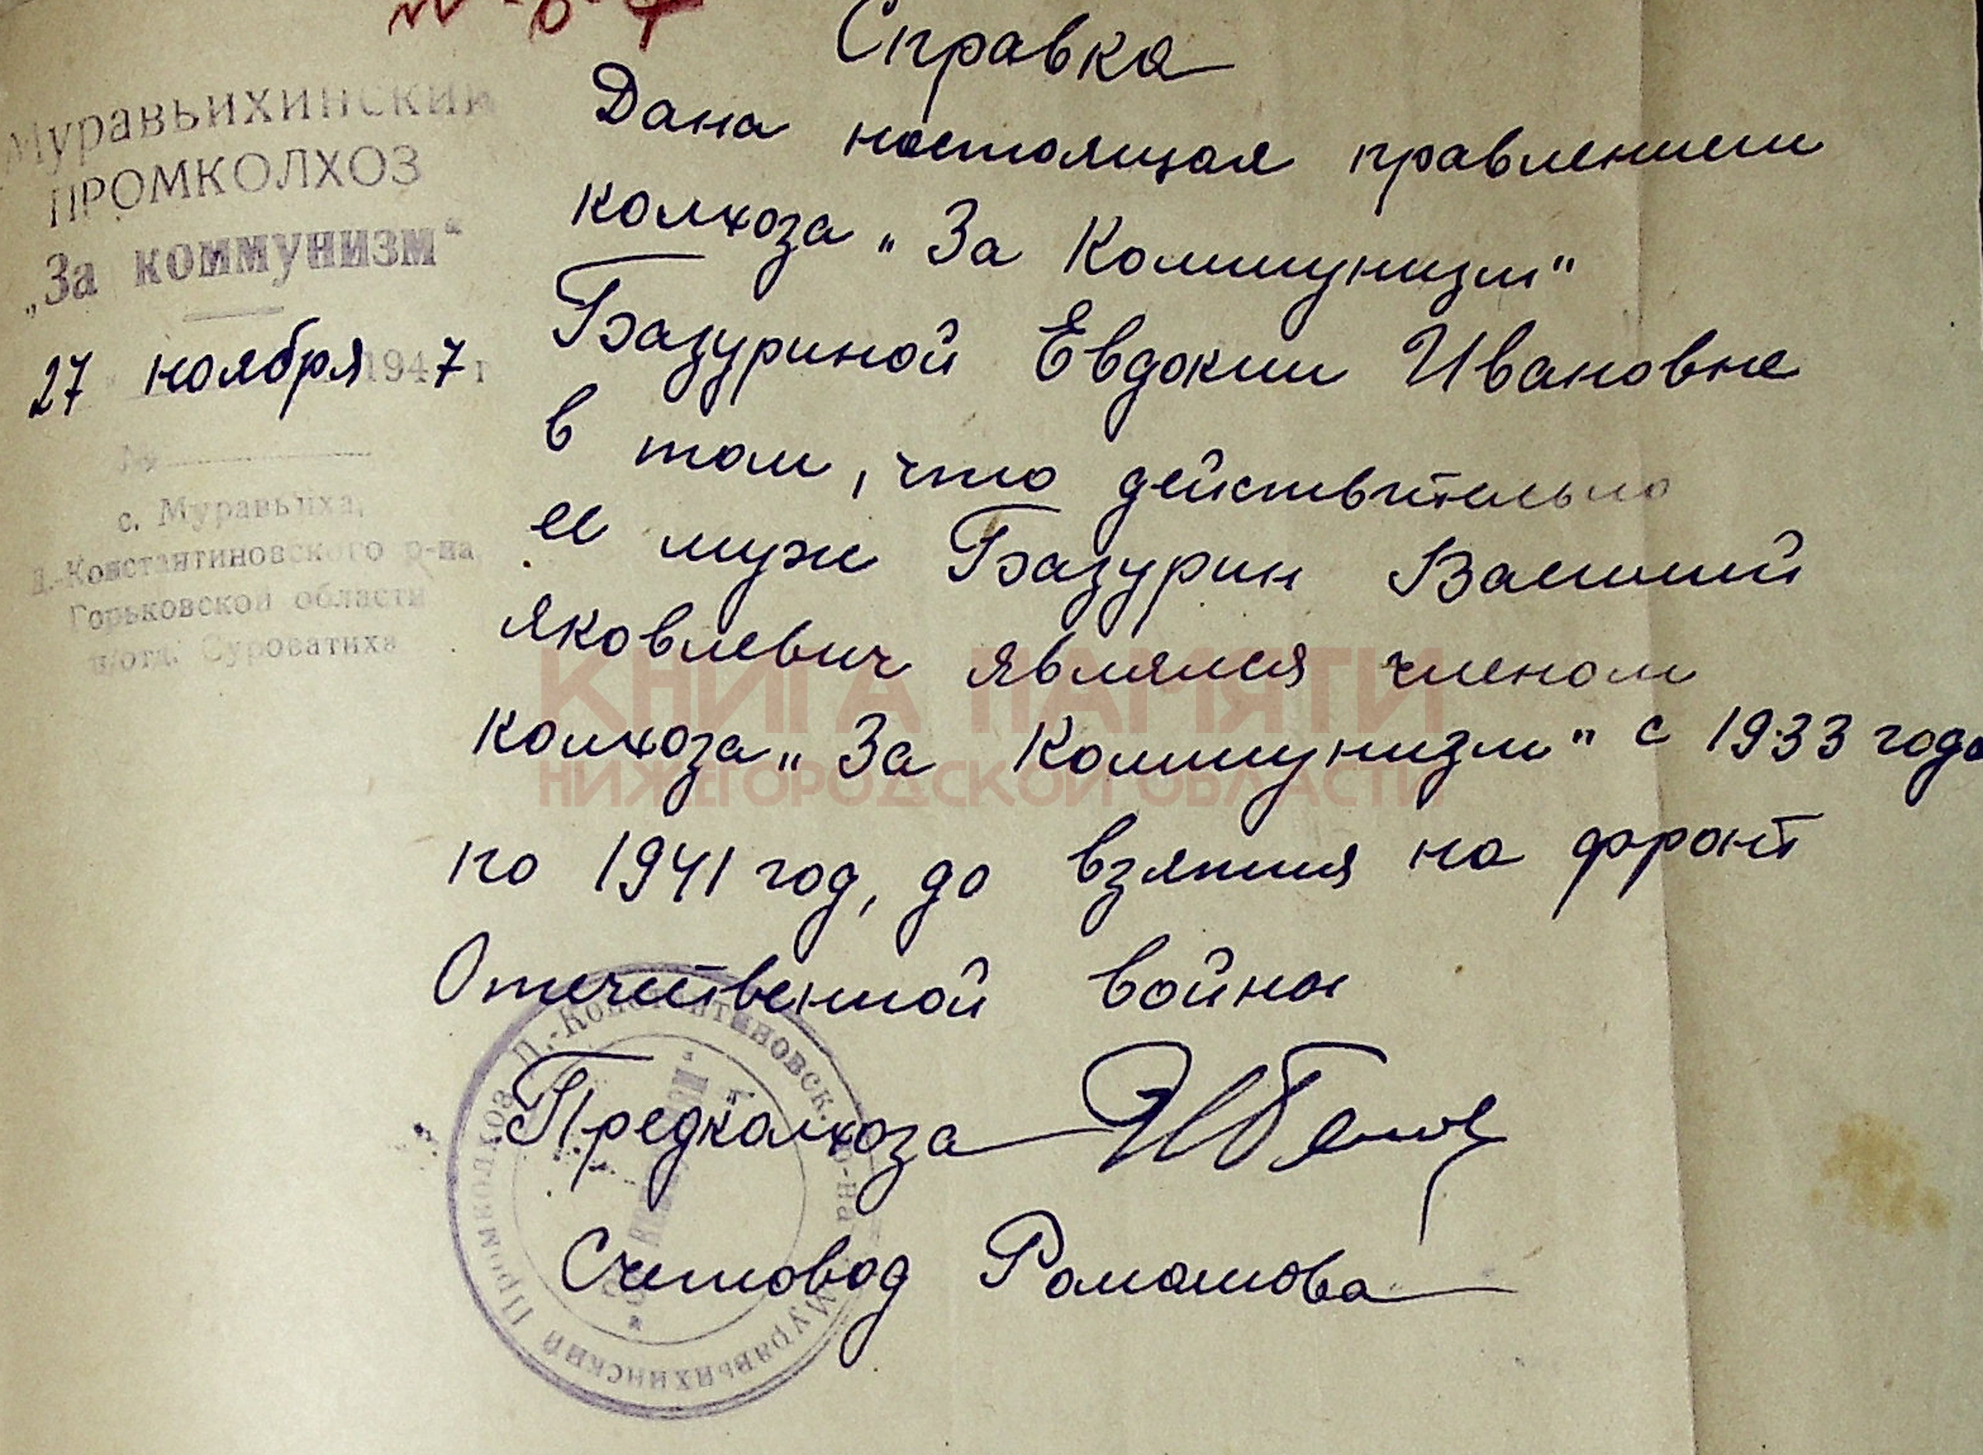 Справка
Муравьихинский
ПРОМКОЛХОЗ
„За коммунизм“
27 ноября 1947 г
№
с. Муравьиха,
Д.-Константиновского р-на,
Горьковской области
п/отд. Суроватиха
Дана настоящая правлением
колхоза „За Коммунизм"
Базуриной Евдокии Ивановне
в том, что действительно
ее муж Базурин Василий
Яковлевич являлся членом
колхоза „За Коммунизм" с 1933 года
по 1941 год, до взятия на фронт
Отечественной войны
Предколхоза
Счетовод Ромашова
Муравьихинский Промколхоз Д.-Константиновск. р-на
КНИГА ПАМЯТИ
НИЖЕГОРОДСКОЙ ОБЛАСТИ